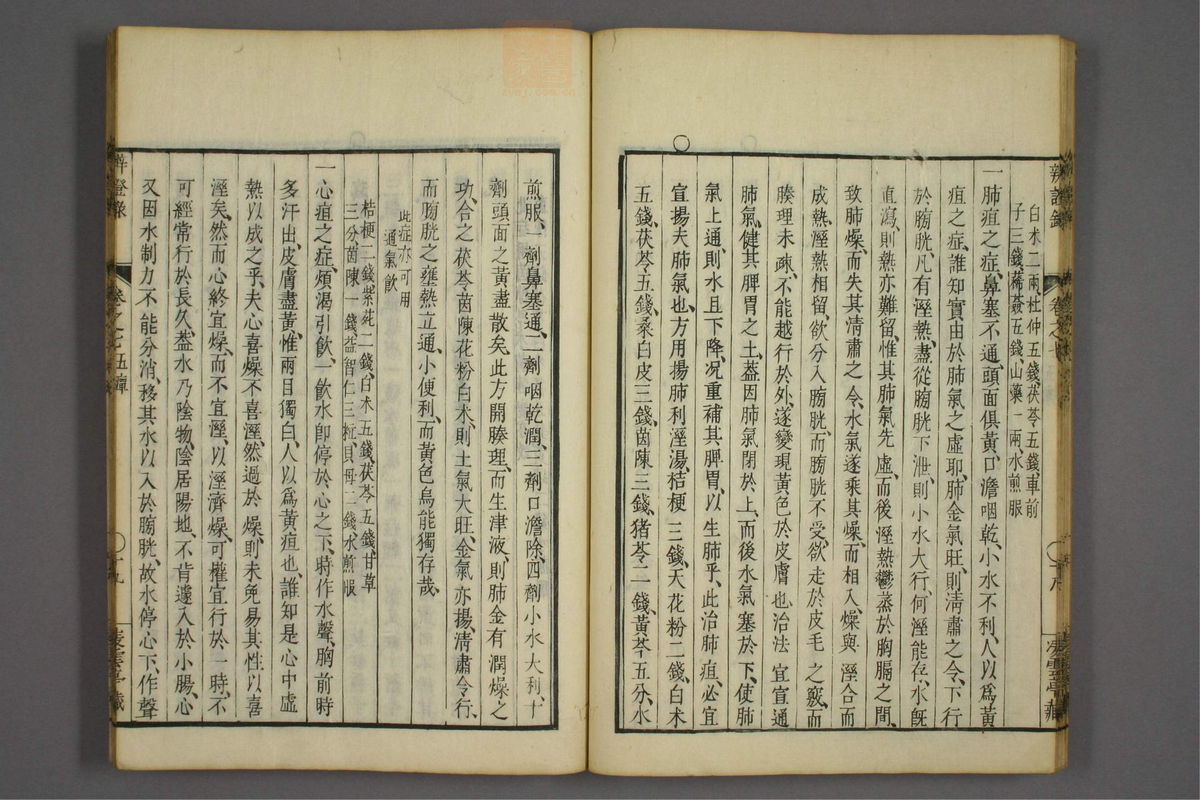 白朮二兩、杜仲五錢、茯苓五錢、車前
子三錢、薏五錢、山藥一兩、水煎服
一肺疸之症、鼻塞不通、頭面俱黃、口澹咽乾、小水不利、人以爲黃
疸之症、誰知實由於肺氣之虛耶、肺金氣旺、則清肅之令、下行
於膀胱、凡有溼熱、盡從膀胱下泄、則小水大行、何溼能存、水旣
直瀉、則熱亦難留、惟其肺氣先虛、而後溼熱鬱蒸於胸膈之間、
致肺燥、而失其清肅之令、水氣遂乘其燥、而相入、燥與溼合而
成熱、溼熱相留、欲分入膀胱、而膀胱不受、欲走於皮毛之竅、而
腠理未疎、不能越行於外、遂變現黃色於皮膚也、治法宜宣通
肺氣、健其脾胃之土、葢因肺氣閉於上、而後水氣塞於下、使肺
氣上通、則水且下降、况重補其脾胃、以生肺乎、此治肺疸、必宜
宣揚夫肺氣也、方用揚肺利溼湯、桔梗三錢、天花粉二錢、白朮
五錢、茯苓五錢、桑白皮三錢、茵陳三錢、猪苓二錢、黃芩五分、水
辨證錄
卷之七
十八
煎服、一劑鼻塞通、二劑咽乾潤、三劑口澹除、四劑小水大利、十
劑頭面之黃盡散矣、此方開腠理、而生津液、則肺金有潤燥之
功、合之茯苓茵陳花粉白朮、則土氣大旺、金氣亦揚、清肅令行、
而膀胱之壅熱立通、小便利、而黃色烏能獨存哉、
此症亦可用
通氣飲
桔梗二錢、紫菀二錢、白朮五錢、茯苓五錢、甘草
三分、茵陳一錢、益智仁三粒、貝母二錢、水煎服
一心疸之症、煩渴引飲、一飲水卽停於心之下、時作水聲、胸前時
多汗出、皮膚盡黃、惟兩目獨白、人以爲黃疸也、誰知是心中虛
熱以成之乎、夫心喜燥、不喜溼、然過於燥、則未免易其性、以喜
溼矣、然而心終宜燥、而不宜溼、以溼濟燥、可權宜行於一時、不
可經常行於長久、葢水乃陰物、陰居陽地、不肯遽入於小腸、心
又因水制力不能分消、移其水以入於膀胱、故水停心下、作聲
辨證錄
卷之七五癉
十九